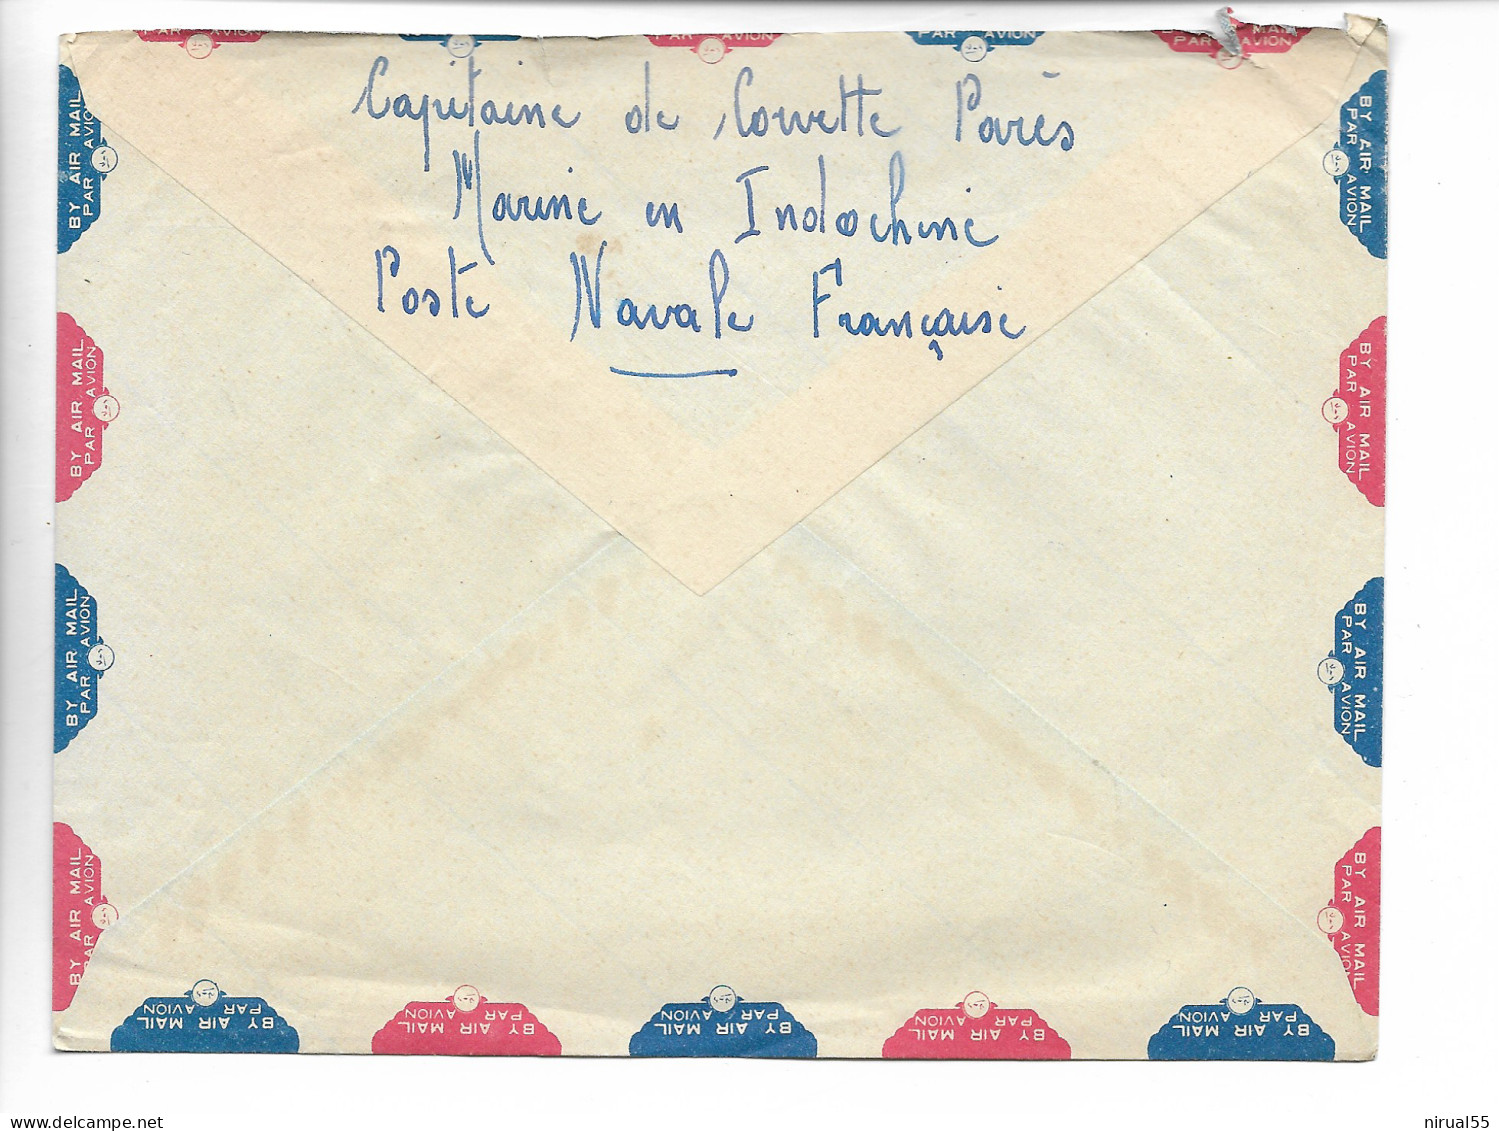 PAR AVION
PAR AVION
PAR AVION
PAR AVION
MAIL
PAR AVION
Capitaine de Corvette Parès
Marine en Indochine
Poste Navale Française
BY AIR MAIL
PAR AVION
BY AIR MAIL
PAR AVION
BY AIR MAIL
PAR AVION
BY AIR MAIL
PAR AVION
BY AIR MAIL
PAR AVION
BY AIR MAIL
PAR AVION
BY AIR MAIL
PAR AVION
BY AIR MAIL
PAR AVION
BY AIR MAIL
PAR AVION
BY AIR MAIL
PAR AVION
BY AIR MAIL
PAR AVION
BY AIR MAIL
PAR AVION
BY AIR MAIL
PAR AVION
nirual55